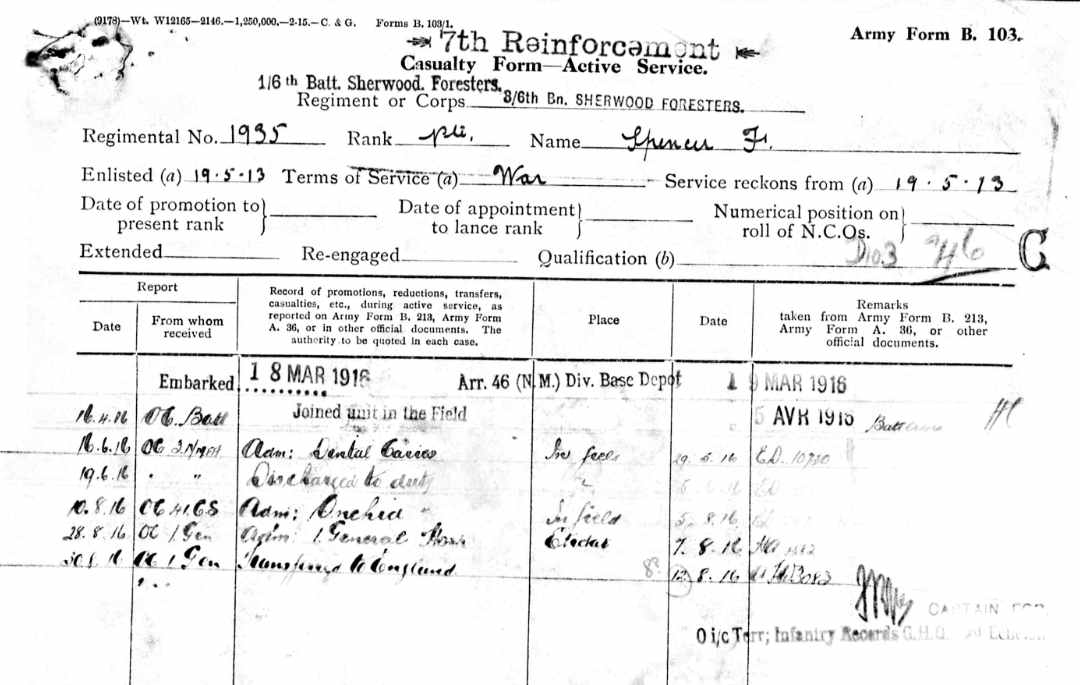 (9178)—Wt. W12165—2146.—1,250,000.—2-15.—C. & G. Forms B. 103/1.
7th Reinforcement
Army Form B. 103.
Casualty Form—Active Service.
1/6th Batt. Sherwood. Foresters.
Regiment or Corps 3/6th Bn. SHERWOOD FORESTERS.
Regimental No. 1935 Rank pte. Name Spencer F.
Enlisted (a) 19.5.13 Terms of Service (a) War Service reckons from (a) 19.5.13
Date of promotion to present rank Date of appointment to lance rank Numerical position on roll of N.C.Os.
Extended Re-engaged Qualification (b)
C
Report
Date
From whom received
Record of promotions, reductions, transfers, casualties, etc., during active service, as reported on Army Form B. 213, Army Form A. 36, or in other official documents. The authority to be quoted in each case.
Place
Date
Remarks taken from Army Form B. 213, Army Form A. 36, or other official documents.
Embarked 18 MAR 1916 Arr. 46 (N.M.) Div. Base Depot 19 MAR 1916
16.4.16 OC. Batt Joined unit in the Field 5 AVR 1916
16.6.16 OC Adm: Dental Caries In field
19.6.16 " " Discharged to duty
10.8.16 OC Adm: In field 5.8.16
28.8.16 OC 1 Gen Adm: 1 General Hosp Etretat 7.8.16
OC 1 Gen Transferred to England 12.8.16
CAPTAIN FOR
O i/c Terr; Infantry Records G.H.Q.